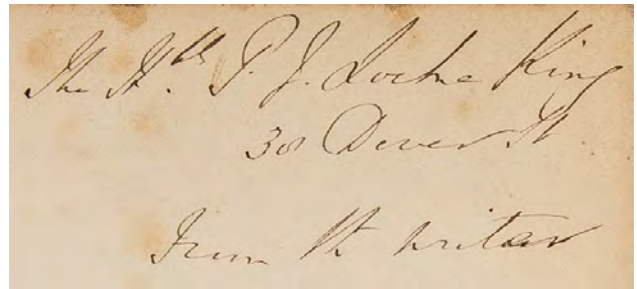 The Hble P. J. Locke King
38 Dover St
From the writer